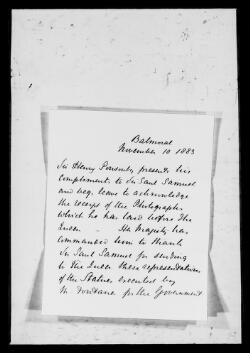 Balmoral
November 10 1883
Sir Henry Ponsonby presents his
compliments to Sir Saul Samuel
and begs leave to acknowledge
the receipt of the Photographs
which he has laid before The
Queen - Her Majesty has
commanded him to thank
Sir Saul Samuel for sending
to The Queen these representations
of the Statue executed by
M. Fontana for the Government